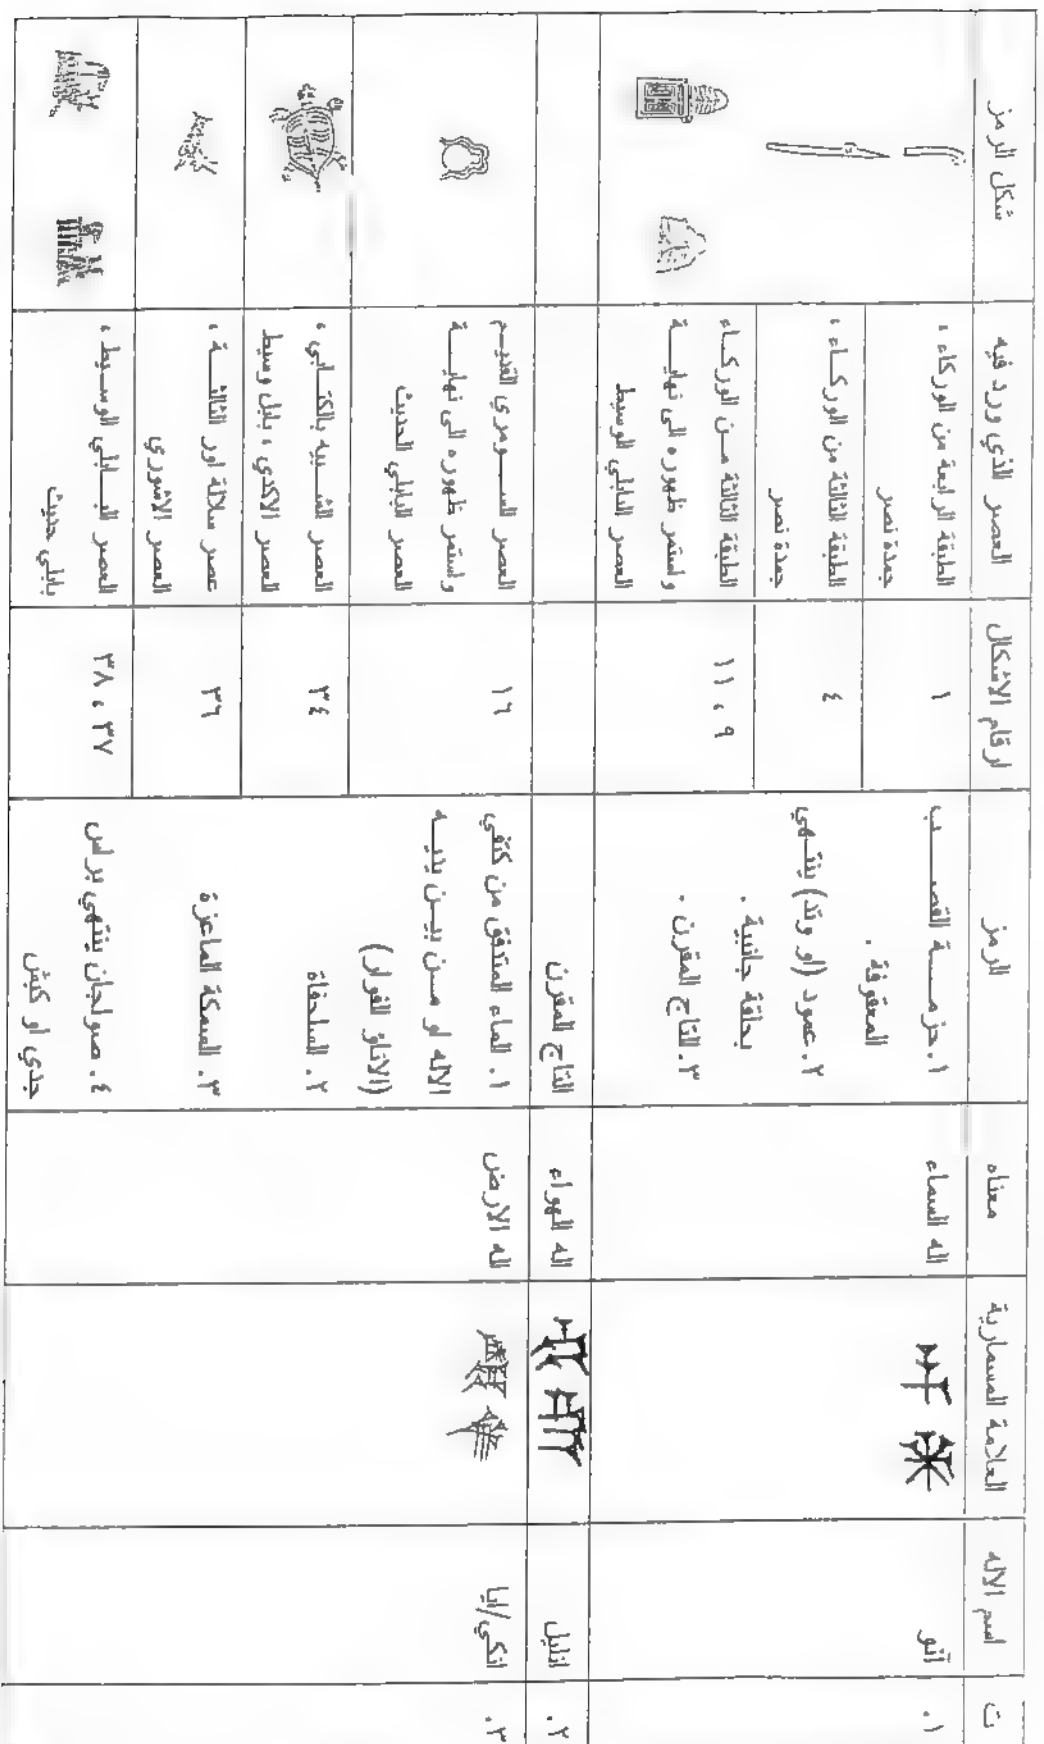 ت	اسم الاله	العلامة المسمارية	معناه	الرمز	ارقام الاشكال	العصر الذي ورد فيه	شكل الرمز
١.	آنو	اله السماء
١. حزمة القصب
المعقوفة .
١
الطبقة الرابعة من الوركاء ،
جمدة نصر
٢. عمود (او وتد) ينتهي
بحلقة جانبية .
٤
الطبقة الثالثة من الوركاء ،
جمدة نصر
٣. التاج المقرن .
٩ ، ١١
الطبقة الثالثة من الوركاء
واستمر ظهوره الى نهاية
العصر البابلي الوسيط
٢.	انليل	اله الهواء	التاج المقرن
٣.	انكي/ايا	اله الارض
١. الماء المتدفق من كتفي
الاله او من بين يديه
(الاناؤ الفوار)
١٦
العصر السومري القديم
واستمر ظهوره الى نهاية
العصر البابلي الحديث
٢. السلحفاة
٣٤
العصر الشبيه بالكتابي ،
العصر الاكدي ، بابل وسيط
٣. السمكة الماعزة
٣٦
عصر سلالة اور الثالثة ،
العصر الاشوري
٤. صولجان ينتهي براس
جدي او كبش
٣٧ ، ٣٨
العصر البابلي الوسيط ،
بابلي حديث